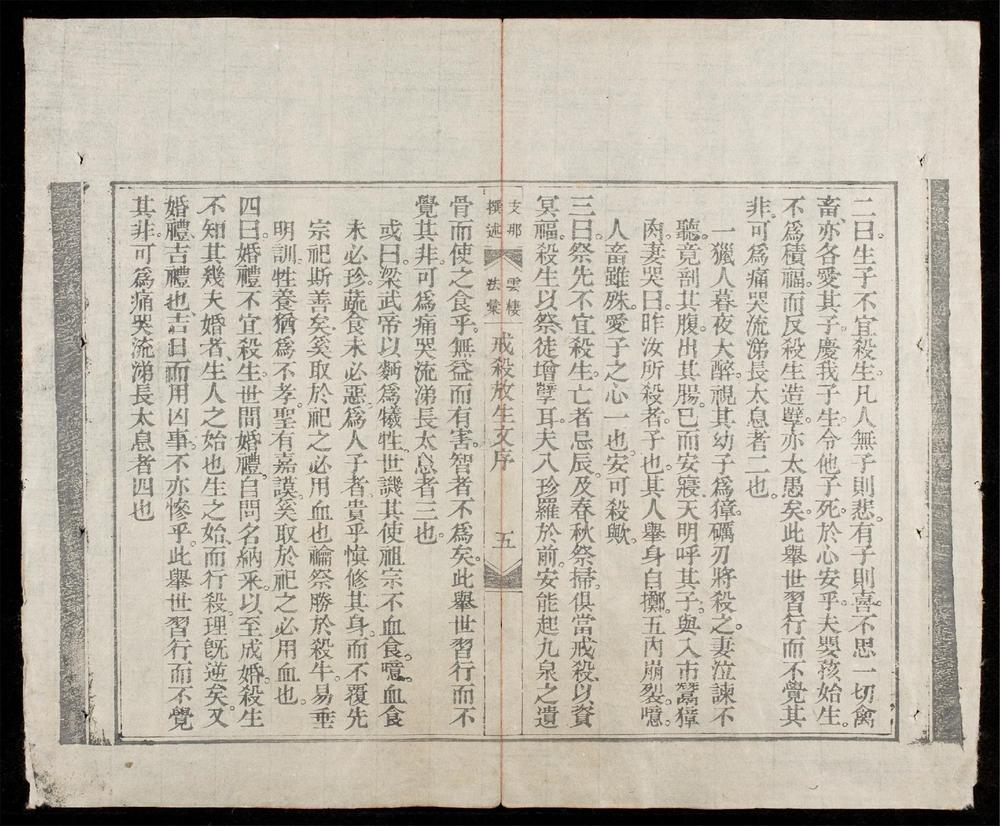 二曰生子不宜殺生。凡人無子則悲。有子則喜。不思一切禽
畜。亦各愛其子。慶我子生。令他子死。於心安乎。夫嬰孩始生。
不爲積福。而反殺生造孽。亦太愚矣。此舉世習行而不覺其
非。可爲痛哭流涕長太息者二也。
一獵人暮夜大醉。視其幼子爲獐。礪刃將殺之。妻泣諫不
聽。竟剖其腹。出其腸。已而安寢。天明呼其子。與入市鬻獐
肉。妻哭曰。昨汝所殺者子也。其人舉身自擲。五內崩裂。噫。
人畜雖殊。愛子之心一也。安可殺歟。
三曰祭先不宜殺生。亡者忌辰。及春秋祭掃。俱當戒殺。以資
冥福。殺生以祭。徒增孽耳。夫八珍羅於前。安能起九泉之遺
支那撰述
雲棲法彙
戒殺放生文序
五
骨而使之食乎。無益而有害。智者不爲矣。此舉世習行而不
覺其非。可爲痛哭流涕長太息者三也。
或曰。梁武帝以麪爲犧牲。世譏其使祖宗不血食。噫。血食
未必珍。蔬食未必惡。爲人子者。貴乎愼修其身。而不覆先
宗祀。斯善矣。奚取於祀之必用血也。禴祭勝於殺牛。易垂
明訓。牲養猶爲不孝。聖有嘉謨。奚取於祀之必用血也。
四曰婚禮不宜殺生。世間婚禮。自問名納采。以至成婚。殺生
不知其幾。夫婚者。生人之始也。生之始。而行殺。理旣逆矣。又
婚禮。吉禮也。吉日而用凶事。不亦慘乎。此舉世習行而不覺
其非。可爲痛哭流涕長太息者四也